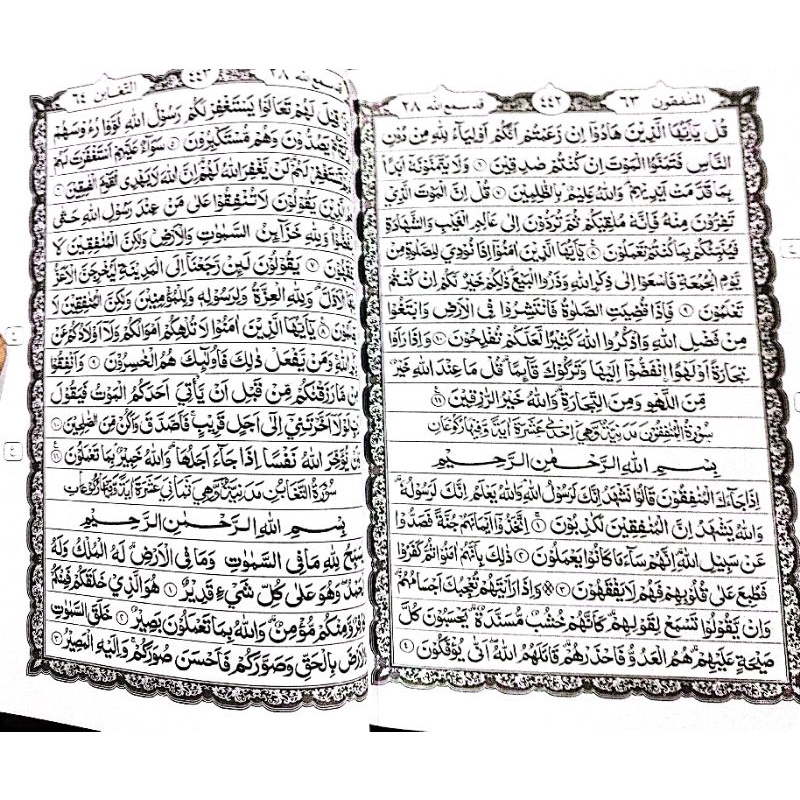 المنفقون ٦٣ ٤٤٢ قد سمع الله ٢٨
قُلْ يٰۤاَيُّهَا الَّذِيْنَ هَادُوْۤا اِنْ زَعَمْتُمْ اَنَّكُمْ اَوْلِيَآءُ لِلّٰهِ مِنْ دُوْنِ
النَّاسِ فَتَمَنَّوُا الْمَوْتَ اِنْ كُنْتُمْ صٰدِقِيْنَ ٦ وَلَا يَتَمَنَّوْنَهٗۤ اَبَدًا
بِمَا قَدَّمَتْ اَيْدِيْهِمْ وَاللّٰهُ عَلِيْمٌۢ بِالظّٰلِمِيْنَ ٧ قُلْ اِنَّ الْمَوْتَ الَّذِيْ
تَفِرُّوْنَ مِنْهُ فَاِنَّهٗ مُلٰقِيْكُمْ ثُمَّ تُرَدُّوْنَ اِلٰى عٰلِمِ الْغَيْبِ وَالشَّهَادَةِ
فَيُنَبِّئُكُمْ بِمَا كُنْتُمْ تَعْمَلُوْنَ ٨ يٰۤاَيُّهَا الَّذِيْنَ اٰمَنُوْۤا اِذَا نُوْدِيَ لِلصَّلٰوةِ مِنْ
يَّوْمِ الْجُمُعَةِ فَاسْعَوْا اِلٰى ذِكْرِ اللّٰهِ وَذَرُوا الْبَيْعَ ذٰلِكُمْ خَيْرٌ لَّكُمْ اِنْ كُنْتُمْ
تَعْلَمُوْنَ ٩ فَاِذَا قُضِيَتِ الصَّلٰوةُ فَانْتَشِرُوْا فِى الْاَرْضِ وَابْتَغُوْا
مِنْ فَضْلِ اللّٰهِ وَاذْكُرُوا اللّٰهَ كَثِيْرًا لَّعَلَّكُمْ تُفْلِحُوْنَ ١٠ وَاِذَا رَاَوْا
تِجَارَةً اَوْ لَهْوًا انْفَضُّوْۤا اِلَيْهَا وَتَرَكُوْكَ قَآئِمًا قُلْ مَا عِنْدَ اللّٰهِ خَيْرٌ
مِّنَ اللَّهْوِ وَمِنَ التِّجَارَةِ وَاللّٰهُ خَيْرُ الرّٰزِقِيْنَ ١١
سُوْرَةُ الْمُنٰفِقُوْنَ مَدَنِيَّةٌ وَّهِيَ اِحْدٰى عَشْرَةَ اٰيَةً وَّفِيْهَا رُكُوْعَانِ
بِسْمِ اللّٰهِ الرَّحْمٰنِ الرَّحِيْمِ
اِذَا جَآءَكَ الْمُنٰفِقُوْنَ قَالُوْا نَشْهَدُ اِنَّكَ لَرَسُوْلُ اللّٰهِ وَاللّٰهُ يَعْلَمُ اِنَّكَ لَرَسُوْلُهٗ
وَاللّٰهُ يَشْهَدُ اِنَّ الْمُنٰفِقِيْنَ لَكٰذِبُوْنَ ١ اِتَّخَذُوْۤا اَيْمَانَهُمْ جُنَّةً فَصَدُّوْا
عَنْ سَبِيْلِ اللّٰهِ اِنَّهُمْ سَآءَ مَا كَانُوْا يَعْمَلُوْنَ ٢ ذٰلِكَ بِاَنَّهُمْ اٰمَنُوْا ثُمَّ كَفَرُوْا
فَطُبِعَ عَلٰى قُلُوْبِهِمْ فَهُمْ لَا يَفْقَهُوْنَ ٣ وَاِذَا رَاَيْتَهُمْ تُعْجِبُكَ اَجْسَامُهُمْ
وَاِنْ يَّقُوْلُوْا تَسْمَعْ لِقَوْلِهِمْ كَاَنَّهُمْ خُشُبٌ مُّسَنَّدَةٌ يَحْسَبُوْنَ كُلَّ
صَيْحَةٍ عَلَيْهِمْ هُمُ الْعَدُوُّ فَاحْذَرْهُمْ قَاتَلَهُمُ اللّٰهُ اَنّٰى يُؤْفَكُوْنَ ٤
سمع الله ٢٨ ٤٤٣ التغابن ٦٤
قِيْلَ لَهُمْ تَعَالَوْا يَسْتَغْفِرْ لَكُمْ رَسُوْلُ اللّٰهِ لَوَّوْا رُءُوْسَهُمْ
يَصُدُّوْنَ وَهُمْ مُّسْتَكْبِرُوْنَ ٥ سَوَآءٌ عَلَيْهِمْ اَسْتَغْفَرْتَ لَهُمْ
تَسْتَغْفِرْ لَهُمْ لَنْ يَّغْفِرَ اللّٰهُ لَهُمْ اِنَّ اللّٰهَ لَا يَهْدِى الْقَوْمَ الْفٰسِقِيْنَ ٦
الَّذِيْنَ يَقُوْلُوْنَ لَا تُنْفِقُوْا عَلٰى مَنْ عِنْدَ رَسُوْلِ اللّٰهِ حَتّٰى
وَلِلّٰهِ خَزَآئِنُ السَّمٰوٰتِ وَالْاَرْضِ وَلٰكِنَّ الْمُنٰفِقِيْنَ لَا
٧ يَقُوْلُوْنَ لَئِنْ رَّجَعْنَاۤ اِلَى الْمَدِيْنَةِ لَيُخْرِجَنَّ الْاَعَزُّ
الْاَذَلَّ وَلِلّٰهِ الْعِزَّةُ وَلِرَسُوْلِهٖ وَلِلْمُؤْمِنِيْنَ وَلٰكِنَّ الْمُنٰفِقِيْنَ لَا
٨ يٰۤاَيُّهَا الَّذِيْنَ اٰمَنُوْا لَا تُلْهِكُمْ اَمْوَالُكُمْ وَلَاۤ اَوْلَادُكُمْ عَنْ
اللّٰهِ وَمَنْ يَّفْعَلْ ذٰلِكَ فَاُولٰٓئِكَ هُمُ الْخٰسِرُوْنَ ٩ وَاَنْفِقُوْا
مِنْ مَّا رَزَقْنٰكُمْ مِّنْ قَبْلِ اَنْ يَّاْتِيَ اَحَدَكُمُ الْمَوْتُ فَيَقُوْلَ
لَوْلَاۤ اَخَّرْتَنِيْۤ اِلٰۤى اَجَلٍ قَرِيْبٍ فَاَصَّدَّقَ وَاَكُنْ مِّنَ الصّٰلِحِيْنَ ١٠
يُّؤَخِّرَ اللّٰهُ نَفْسًا اِذَا جَآءَ اَجَلُهَا وَاللّٰهُ خَبِيْرٌۢ بِمَا تَعْمَلُوْنَ ١١
سُوْرَةُ التَّغَابُنِ مَدَنِيَّةٌ وَّهِيَ ثَمَانِيَ عَشْرَةَ اٰيَةً وَّفِيْهَا رُكُوْعَانِ
بِسْمِ اللّٰهِ الرَّحْمٰنِ الرَّحِيْمِ
يُسَبِّحُ لِلّٰهِ مَا فِى السَّمٰوٰتِ وَمَا فِى الْاَرْضِ لَهُ الْمُلْكُ وَلَهُ
الْحَمْدُ وَهُوَ عَلٰى كُلِّ شَيْءٍ قَدِيْرٌ ١ هُوَ الَّذِيْ خَلَقَكُمْ فَمِنْكُمْ
وَّمِنْكُمْ مُّؤْمِنٌ وَاللّٰهُ بِمَا تَعْمَلُوْنَ بَصِيْرٌ ٢ خَلَقَ السَّمٰوٰتِ
وَالْاَرْضَ بِالْحَقِّ وَصَوَّرَكُمْ فَاَحْسَنَ صُوَرَكُمْ وَاِلَيْهِ الْمَصِيْرُ ٣